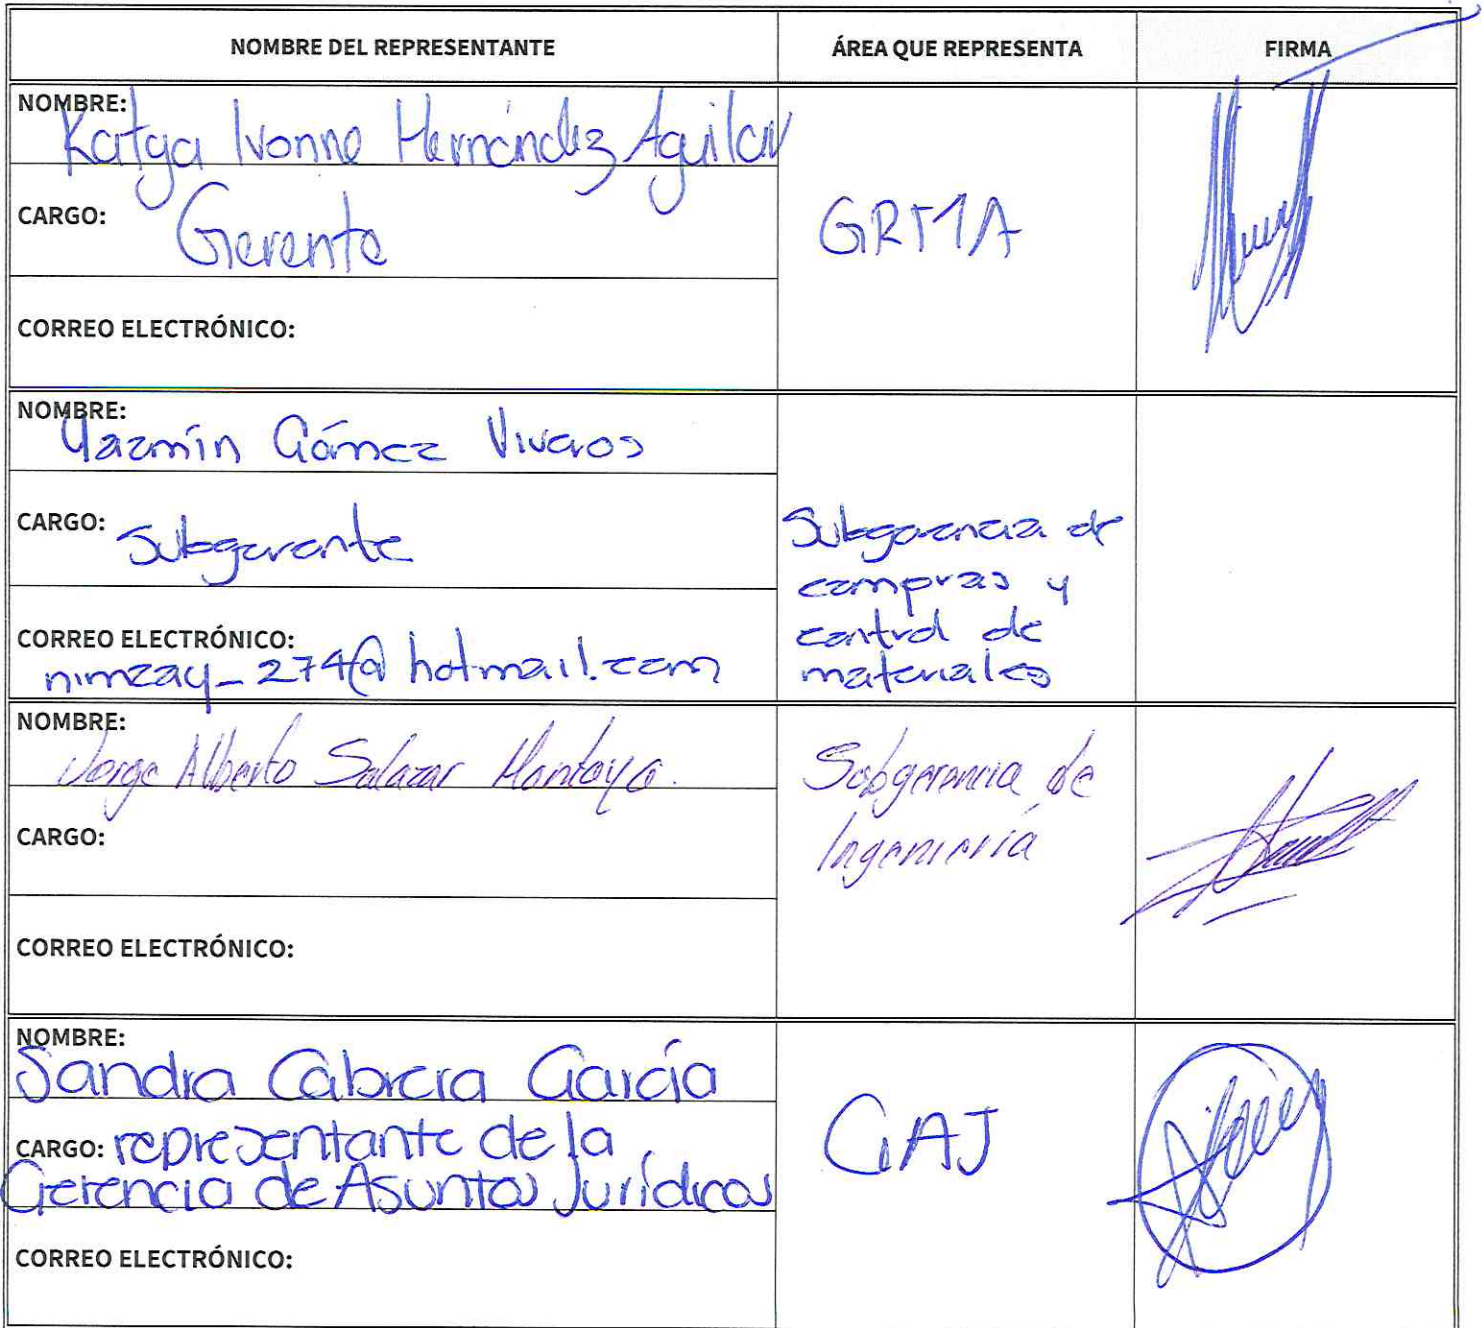 NOMBRE DEL REPRESENTANTE ÁREA QUE REPRESENTA FIRMA
NOMBRE: Katya Ivonne Hernández Aguilar
CARGO: Gerente
GRMA
CORREO ELECTRÓNICO:
NOMBRE: Yazmín Gómez Viveros
CARGO: Subgerente
CORREO ELECTRÓNICO: nimzay_274@hotmail.com
Subgerencia de
compras y
control de
materiales
NOMBRE: Jorge Alberto Salazar Montoya.
CARGO:
CORREO ELECTRÓNICO:
Subgerencia de
Ingeniería
NOMBRE: Sandra Cabrera García
CARGO: representante de la
Gerencia de Asuntos Jurídicos
GAJ
CORREO ELECTRÓNICO: